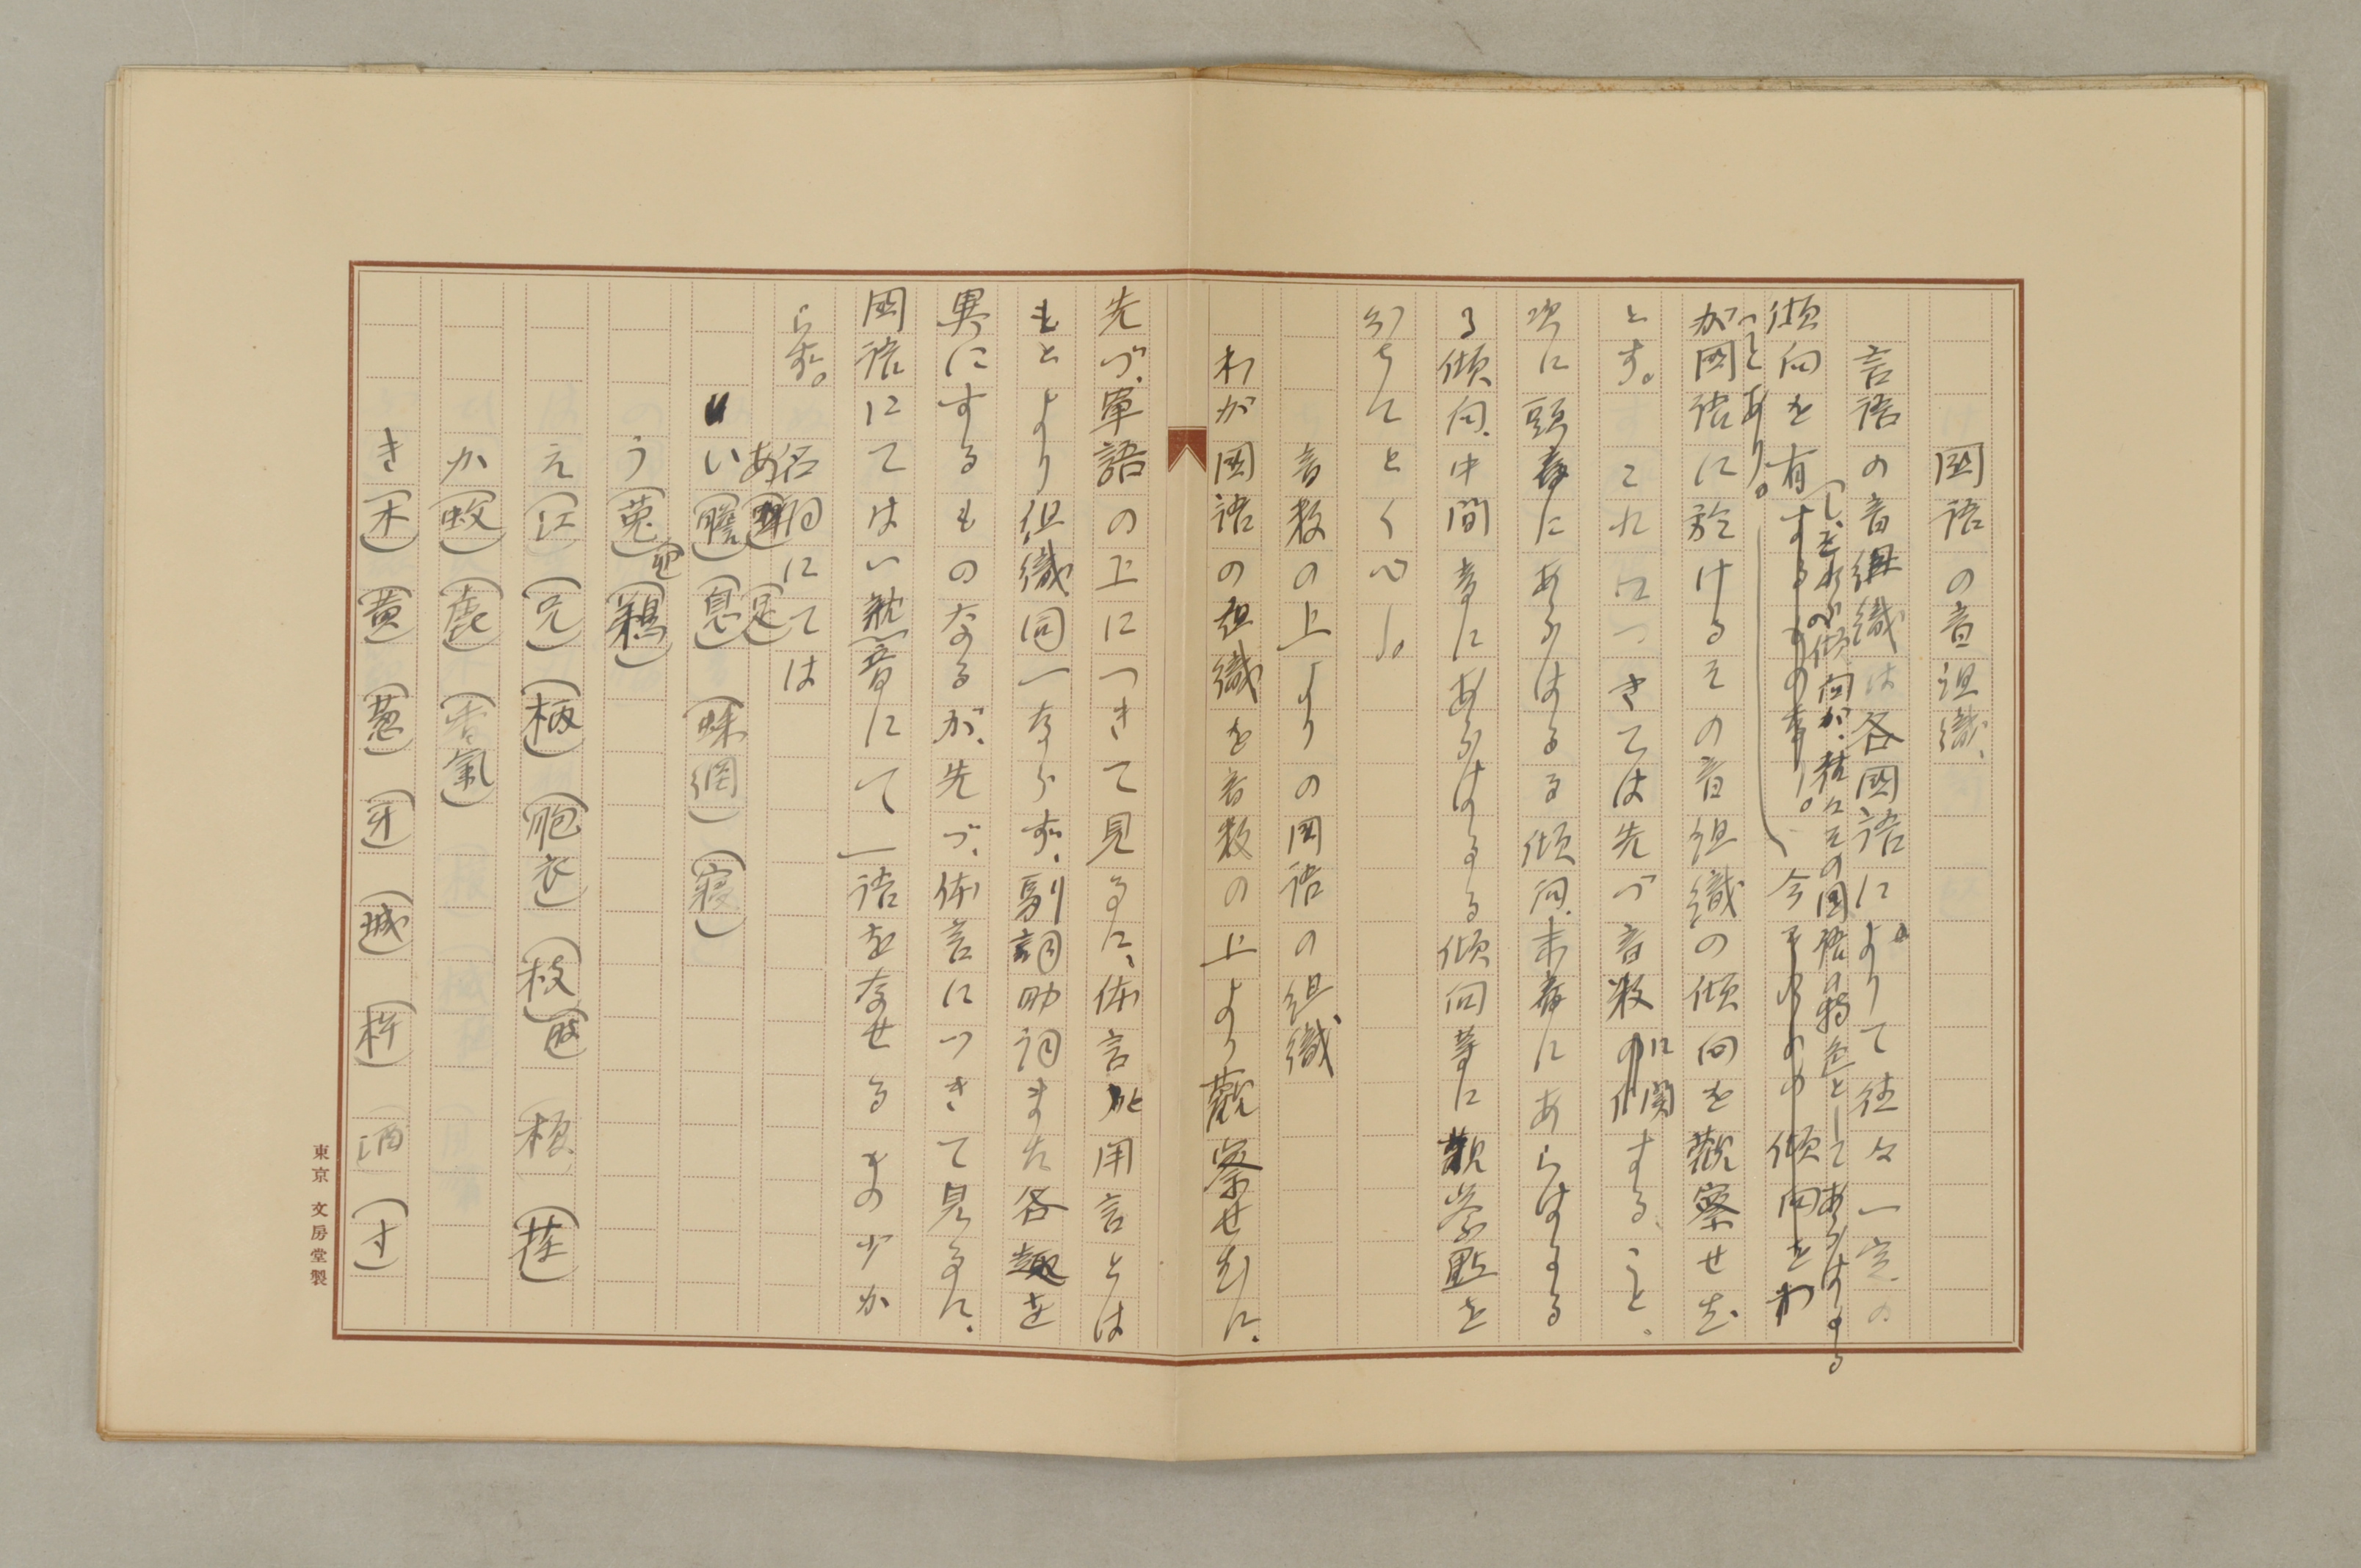 国語の音組織、
言語の音組織は各国語によりて往々一定の
傾向を有するもの多し。今その傾向をわ
し、それらの傾向が、粧にその国語の特色としてあらはるる
ことあり。
が国語に於けるその音組織の傾向を観察せむ
とす。これにつきては先づ音数に関すること、
次に頭音にあらはるる傾向、末音にあらはるる
る傾向、中間音にあらはるる傾向等に観察点を
分ちてとくべし。
音数の上よりの国語の組織
わが国語の組織を音数の上より観察せむに、
先づ、単語の上につきて見るに、体言と用言とは
もとより組織同一ならず、副詞助詞また各趣を
異にするものなるが、先づ、体言につきて見るに、
国語にては、一音にて一語をなせるもの少か
らず。名詞にては
あ(足)
い(膽)(息)(蛛網)(寝)
う(菟)(鵜)
え(江)(兄)(柄)(胞衣)(枝)(肢)(榎)(荏)
か(蚊)(鹿)(香氣)
き(木)(黄)(葱)(牙)(城)(杵)(酒)(寸)
東京 文房堂製